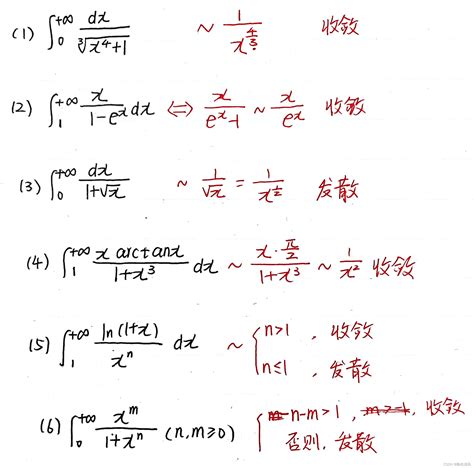 (1) ∫₀^{+∞} dx/∛(x⁴+1) ~ 1/x^{4/3} 收敛
(2) ∫₁^{+∞} x/(1-eˣ) dx ⟺ x/(eˣ-1) ~ x/eˣ 收敛
(3) ∫₀^{+∞} dx/(1+√x) ~ 1/√x = 1/x^{1/2} 发散
(4) ∫₁^{+∞} x arctanx/(1+x³) dx ~ x·π/2/(1+x³) ~ 1/x² 收敛
(5) ∫₁^{+∞} ln(1+x)/xⁿ dx ~ { n>1, 收敛
n≤1, 发散
(6) ∫₀^{+∞} x^m/(1+xⁿ) (n,m≥0) { n-m>1, 收敛
否则, 发散